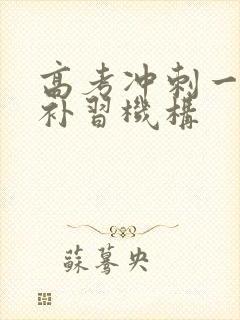 高考冲刺一
补習機構
蘇驀央